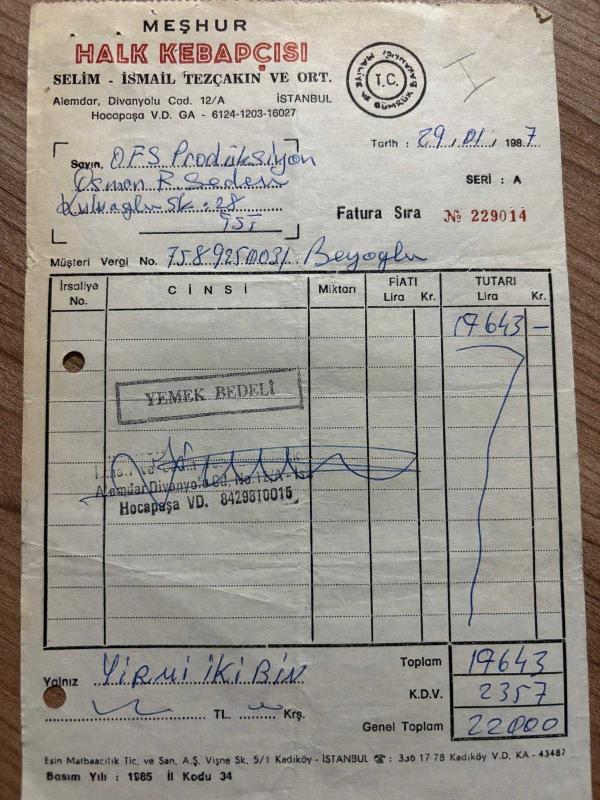 MEŞHUR
HALK KEBAPÇISI
SELİM - İSMAİL TEZÇAKIN VE ORT.
Alemdar, Divanyolu Cad. 12/A İSTANBUL
Hocapaşa V.D. GA - 6124-1203-16027
T.C.
MALİYE VE GÜMRÜK BAKANLIĞI
Tarih : 29/01/1987
SERİ : A
Sayın, OFS Prodüksiyon
Osman F. Seden
Sk. 28
İST
Fatura Sıra № 229014
Müşteri Vergi No. 7589250031 Beyoğlu
İrsaliye No. CİNSİ Miktarı FİATI Lira Kr. TUTARI Lira Kr.
19643 —
YEMEK BEDELİ
Alemdar Divanyolu Cd. No. 12/A - İst
Hocapaşa VD. 8429810015
Toplam 19643
Yalnız YİRMİ İKİ BİN
K.D.V. 2357
TL. Krş.
Genel Toplam 22000
Esin Matbaacılık Tic. ve San. A.Ş. Vişne Sk. 5/1 Kadıköy - İSTANBUL ☎ : 336 17 78 Kadıköy V.D. KA - 43487
Basım Yılı : 1985 İl Kodu 34